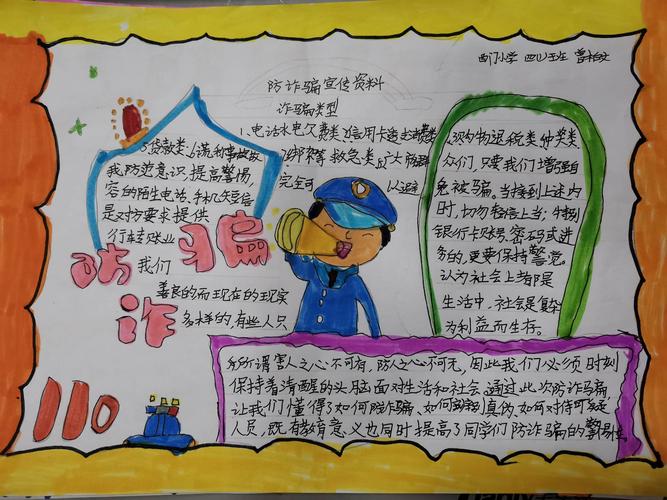 西门小学 四(1)班 曾
防诈骗宣传资料
诈骗类型
1、电话水电欠费类、2、信用卡透支消费类
3、购物退税类、4、中奖类
5、贷款类、6、谎称事故
7、绑架救急类、8、广大
众们，只要我们增强自
我防范意识提高警惕，
完全可
以避
免被骗。当接到上述内
容的陌生电话、手机短信
时，切勿轻信上当；牛特别
是对方要求提供
银行卡账号、密码或进
行转账业
务的，更要保持警觉。
我们
认为社会上都是
善良的而现在的现实
生活中，社会是复杂
多样的，有些人只
为利益而生存。
防骗
诈
110
所谓害人之心不可有，防人之心不可无，因此我们必须时刻
保持着清醒的头脑面对生活和社会。通过此次防诈骗
让我们懂得了如何防诈骗、如何真伪，如何对待可疑
人员，既有教育意义也同时提高了同学们防诈骗的警惕性。